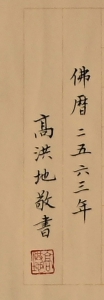 佛曆二五六三年
高洪地敬書